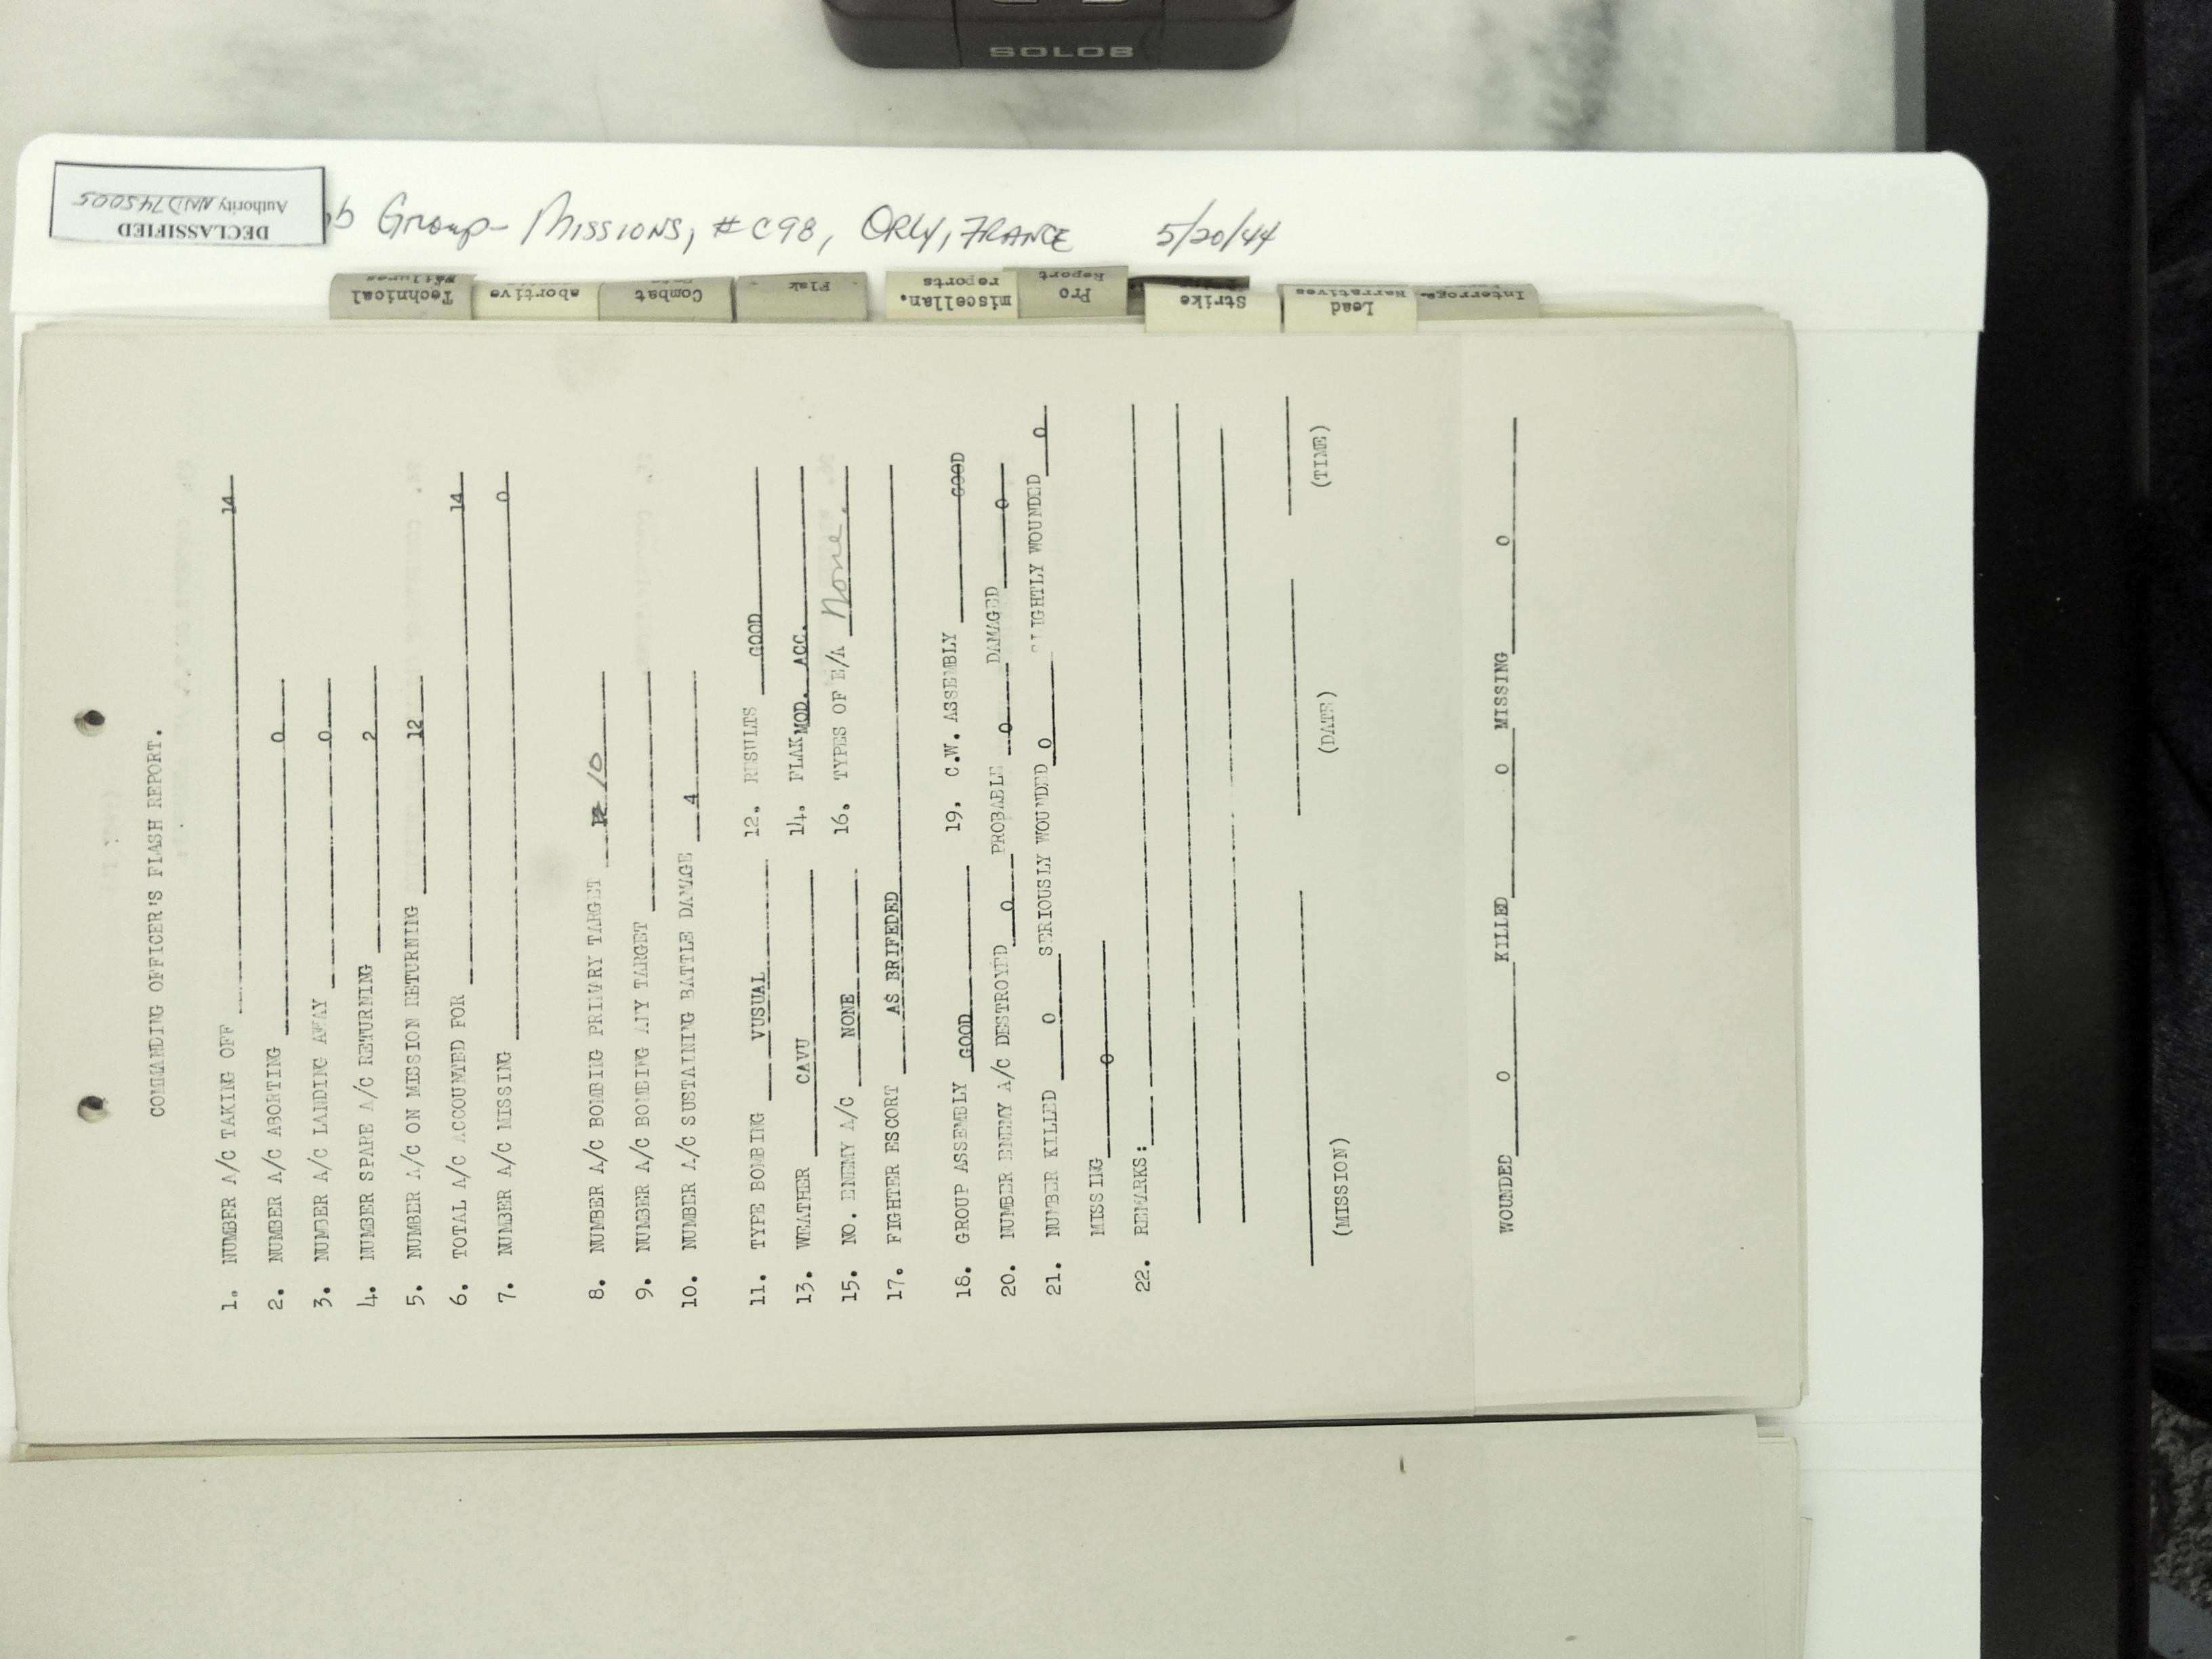 SOLO8
DECLASSIFIED
Authority NND 745005
Group- Missions, #C98, ORLY, FRANCE 5/20/44
Technical
Failures
abortive
Combat
Flak
miscellan.
reports
Pro
Report
Strike
Lead
Narratives
Interroga-
COMMANDING OFFICER'S FLASH REPORT.
1. NUMBER A/C TAKING OFF 14
2. NUMBER A/C ABORTING 0
3. NUMBER A/C LANDING AWAY 0
4. NUMBER SPARE A/C RETURNING 2
5. NUMBER A/C ON MISSION RETURNING 12
6. TOTAL A/C ACCOUNTED FOR 14
7. NUMBER A/C MISSING 0
8. NUMBER A/C BOMBING PRIMARY TARGET 10
9. NUMBER A/C BOMBING ANY TARGET
10. NUMBER A/C SUSTAINING BATTLE DAMAGE 4
11. TYPE BOMBING VUSUAL 12. RESULTS GOOD
13. WEATHER CAVU 14. FLAK MOD. ACC.
15. NO. ENEMY A/C NONE 16. TYPES OF E/A None.
17. FIGHTER ESCORT AS BRIFEDED
18. GROUP ASSEMBLY GOOD 19. C.W. ASSEMBLY GOOD
20. NUMBER ENEMY A/C DESTROYED 0 PROBABLE 0 DAMAGED 0
21. NUMBER KILLED 0 SERIOUSLY WOUNDED 0 SLIGHTLY WOUNDED 0
MISSING 0
22. REMARKS:
(MISSION) (DATE) (TIME)
WOUNDED 0 KILLED 0 MISSING 0